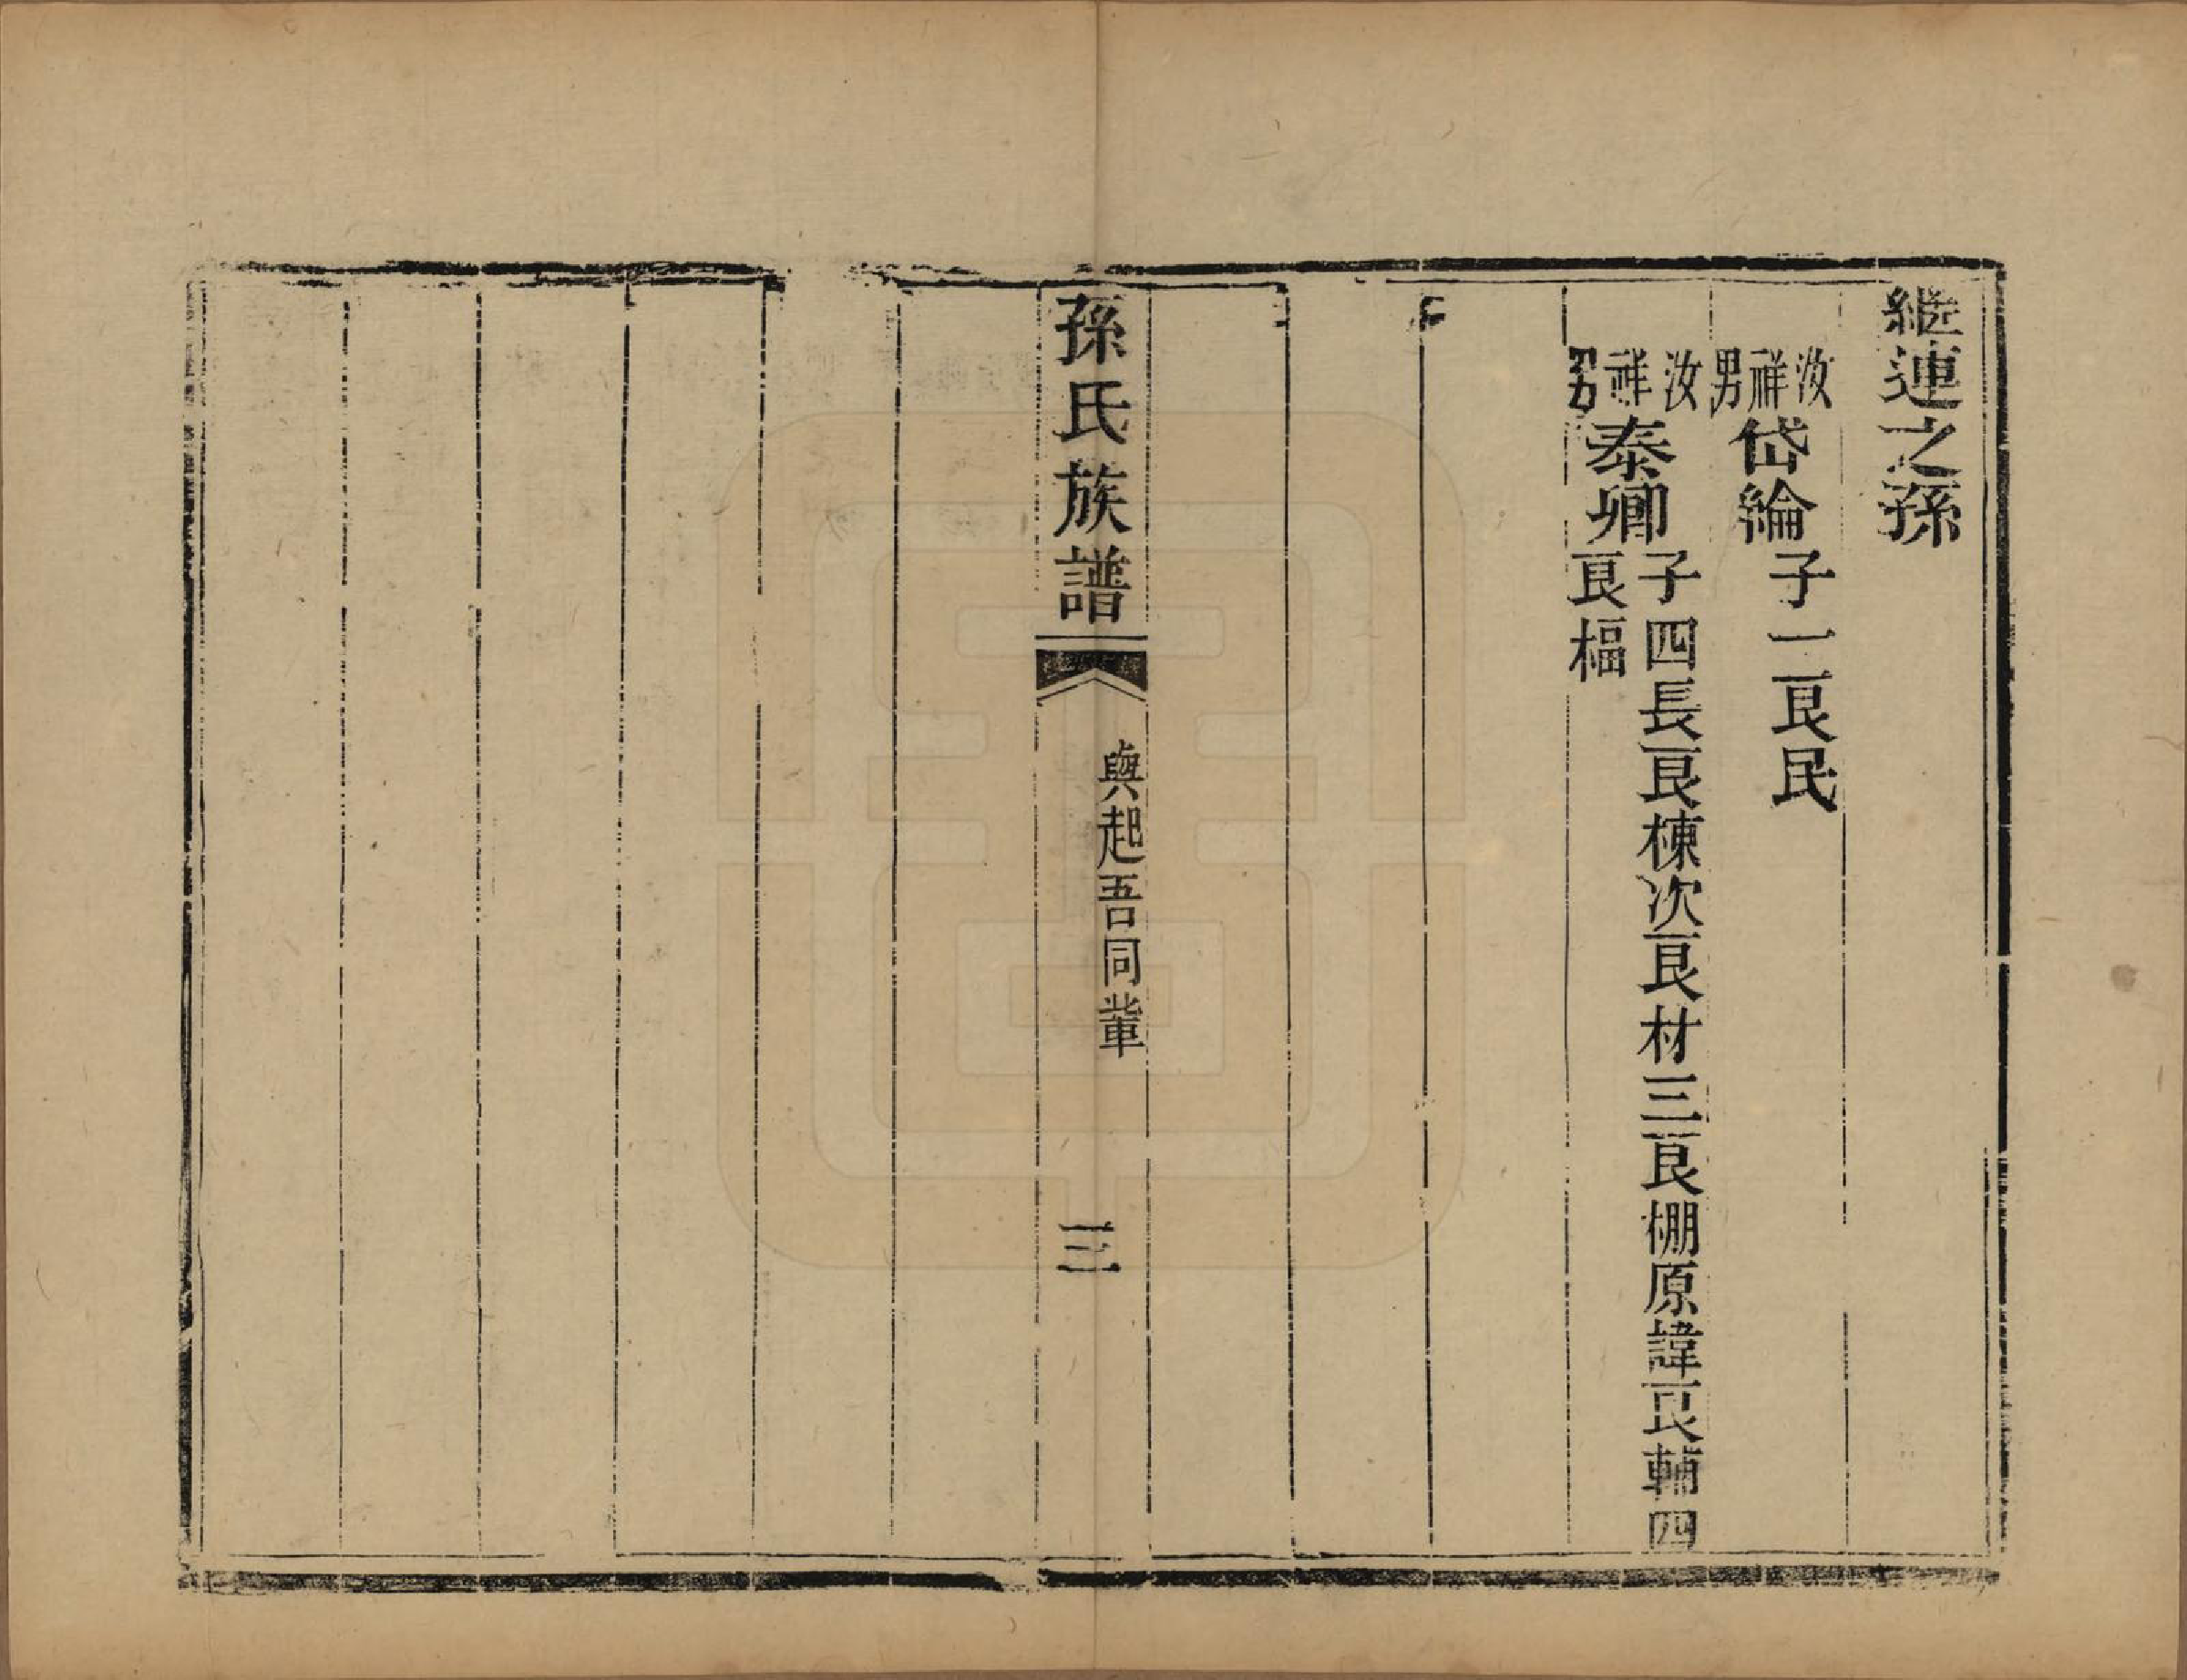 繼連之孫
汝祥男 岱綸 子一良民
汝祥男 泰卿 子四長良棟次良材三良棚原諱良輔四
良楅
孫氏族譜 與起吾同輩 三